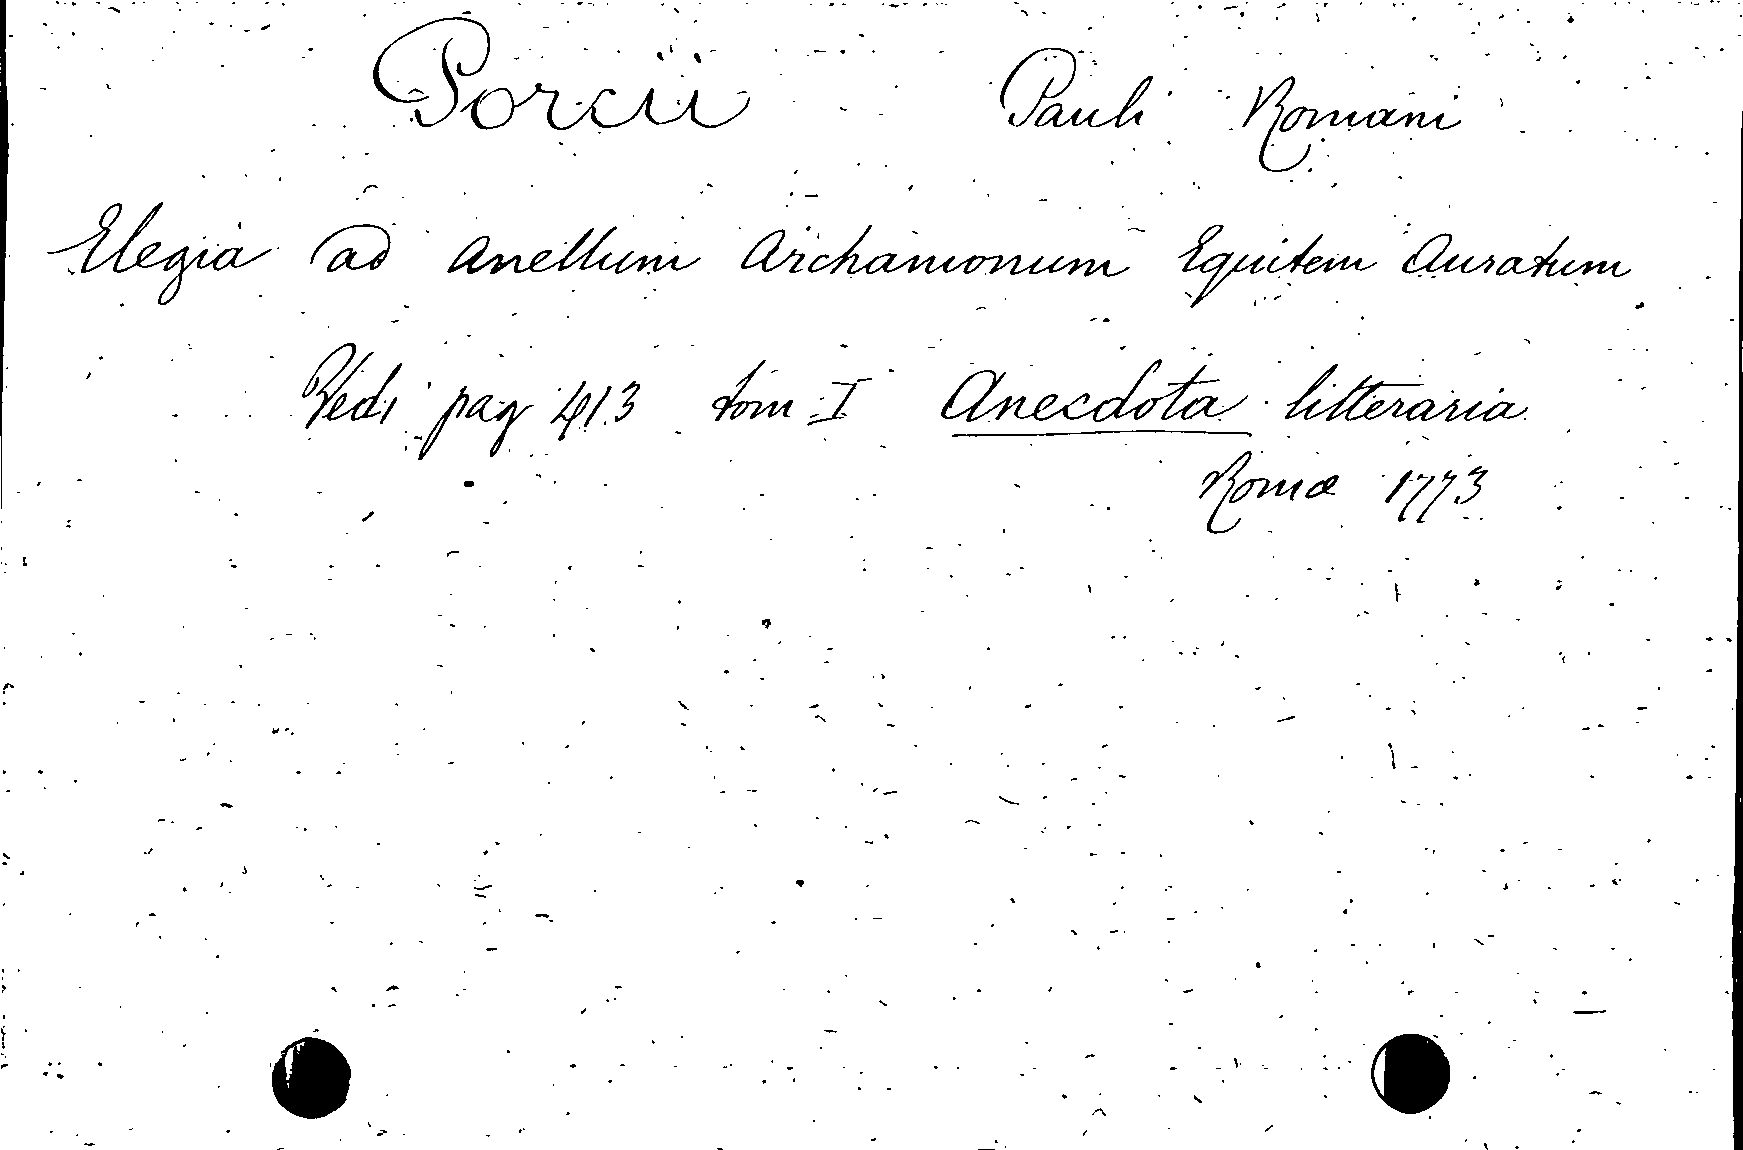 Porcii Pauli Romani
Elegia ad Anellum Archamonum Equitem Auratum
Vedi pag 413 tom I Anecdota litteraria
Romæ 1773